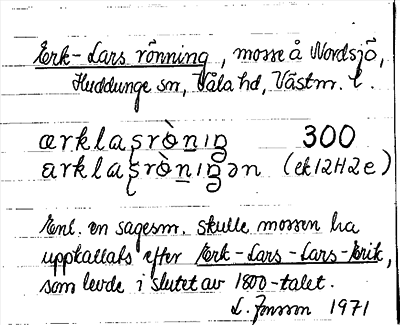 Erk-Lars rönning, mosse å Nordsjö,
Huddunge sn, Våla hd, Västm. l.
ærklaʂrònıŋ 300
arklaʂrònıŋən (ek12H2e)
Enl. en sagesm. skulle mossen ha
uppkallats efter Erk-Lars-Lars-Erik,
som levde i slutet av 1800-talet.
L. Jonson 1971